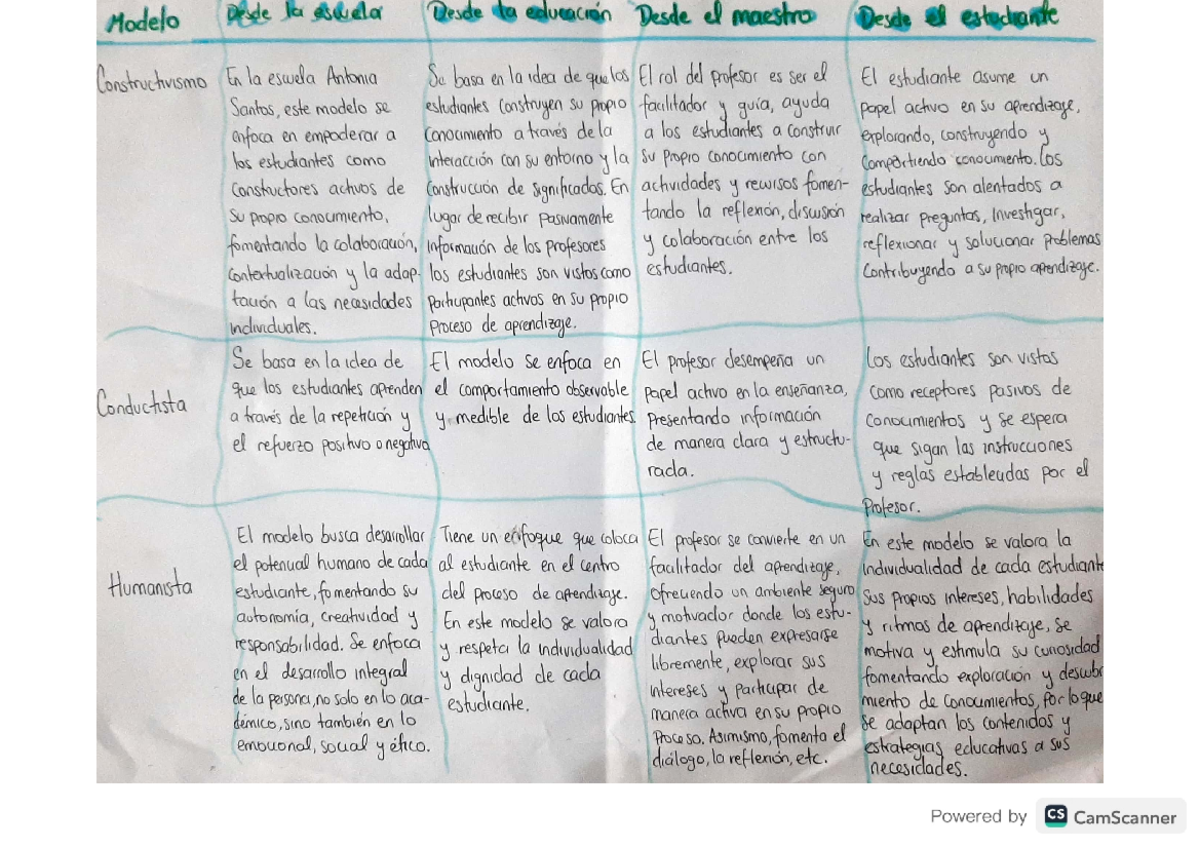 Modelo
Desde la escuela
Desde la educación
Desde el maestro
Desde el estudiante
Constructivismo
En la escuela Antonia
Santos, este modelo se
enfoca en empoderar a
los estudiantes como
constructores activos de
su propio conocimiento,
fomentando la colaboración,
contextualización y la adap-
tación a las necesidades
individuales.
Se basa en la idea de que los
estudiantes construyen su propio
conocimiento a través de la
interacción con su entorno y la
construcción de significados. En
lugar de recibir pasivamente
información de los profesores
los estudiantes son vistos como
participantes activos en su propio
proceso de aprendizaje.
El rol del profesor es ser el
facilitador y guía, ayuda
a los estudiantes a construir
su propio conocimiento con
actividades y recursos fomen-
tando la reflexión, discusión
y colaboración entre los
estudiantes.
El estudiante asume un
papel activo en su aprendizaje,
explorando, construyendo y
compartiendo conocimiento. Los
estudiantes son alentados a
realizar preguntas, investigar,
reflexionar y solucionar problemas
contribuyendo a su propio aprendizaje.
Conductista
Se basa en la idea de
que los estudiantes aprenden
a través de la repetición y
el refuerzo positivo o negativo
El modelo se enfoca en
el comportamiento observable
y medible de los estudiantes.
El profesor desempeña un
papel activo en la enseñanza,
presentando información
de manera clara y estructu-
rada.
Los estudiantes son vistos
como receptores pasivos de
conocimientos y se espera
que sigan las instrucciones
y reglas establecidas por el
profesor.
Humanista
El modelo busca desarrollar
el potencial humano de cada
estudiante, fomentando su
autonomía, creatividad y
responsabilidad. Se enfoca
en el desarrollo integral
de la persona, no solo en lo aca-
démico, sino también en lo
emocional, social y ético.
Tiene un enfoque que coloca
al estudiante en el centro
del proceso de aprendizaje.
En este modelo se valora
y respeta la individualidad
y dignidad de cada
estudiante.
El profesor se convierte en un
facilitador del aprendizaje,
ofreciendo un ambiente seguro
y motivador donde los estu-
diantes pueden expresarse
libremente, explorar sus
intereses y participar de
manera activa en su propio
proceso. Asimismo, fomenta el
diálogo, la reflexión, etc.
En este modelo se valora la
individualidad de cada estudiante
sus propios intereses, habilidades
y ritmos de aprendizaje, se
motiva y estimula su curiosidad
fomentando exploración y descubri
miento de conocimientos, por lo que
se adaptan los contenidos y
estrategias educativas a sus
necesidades.
Powered by CS CamScanner